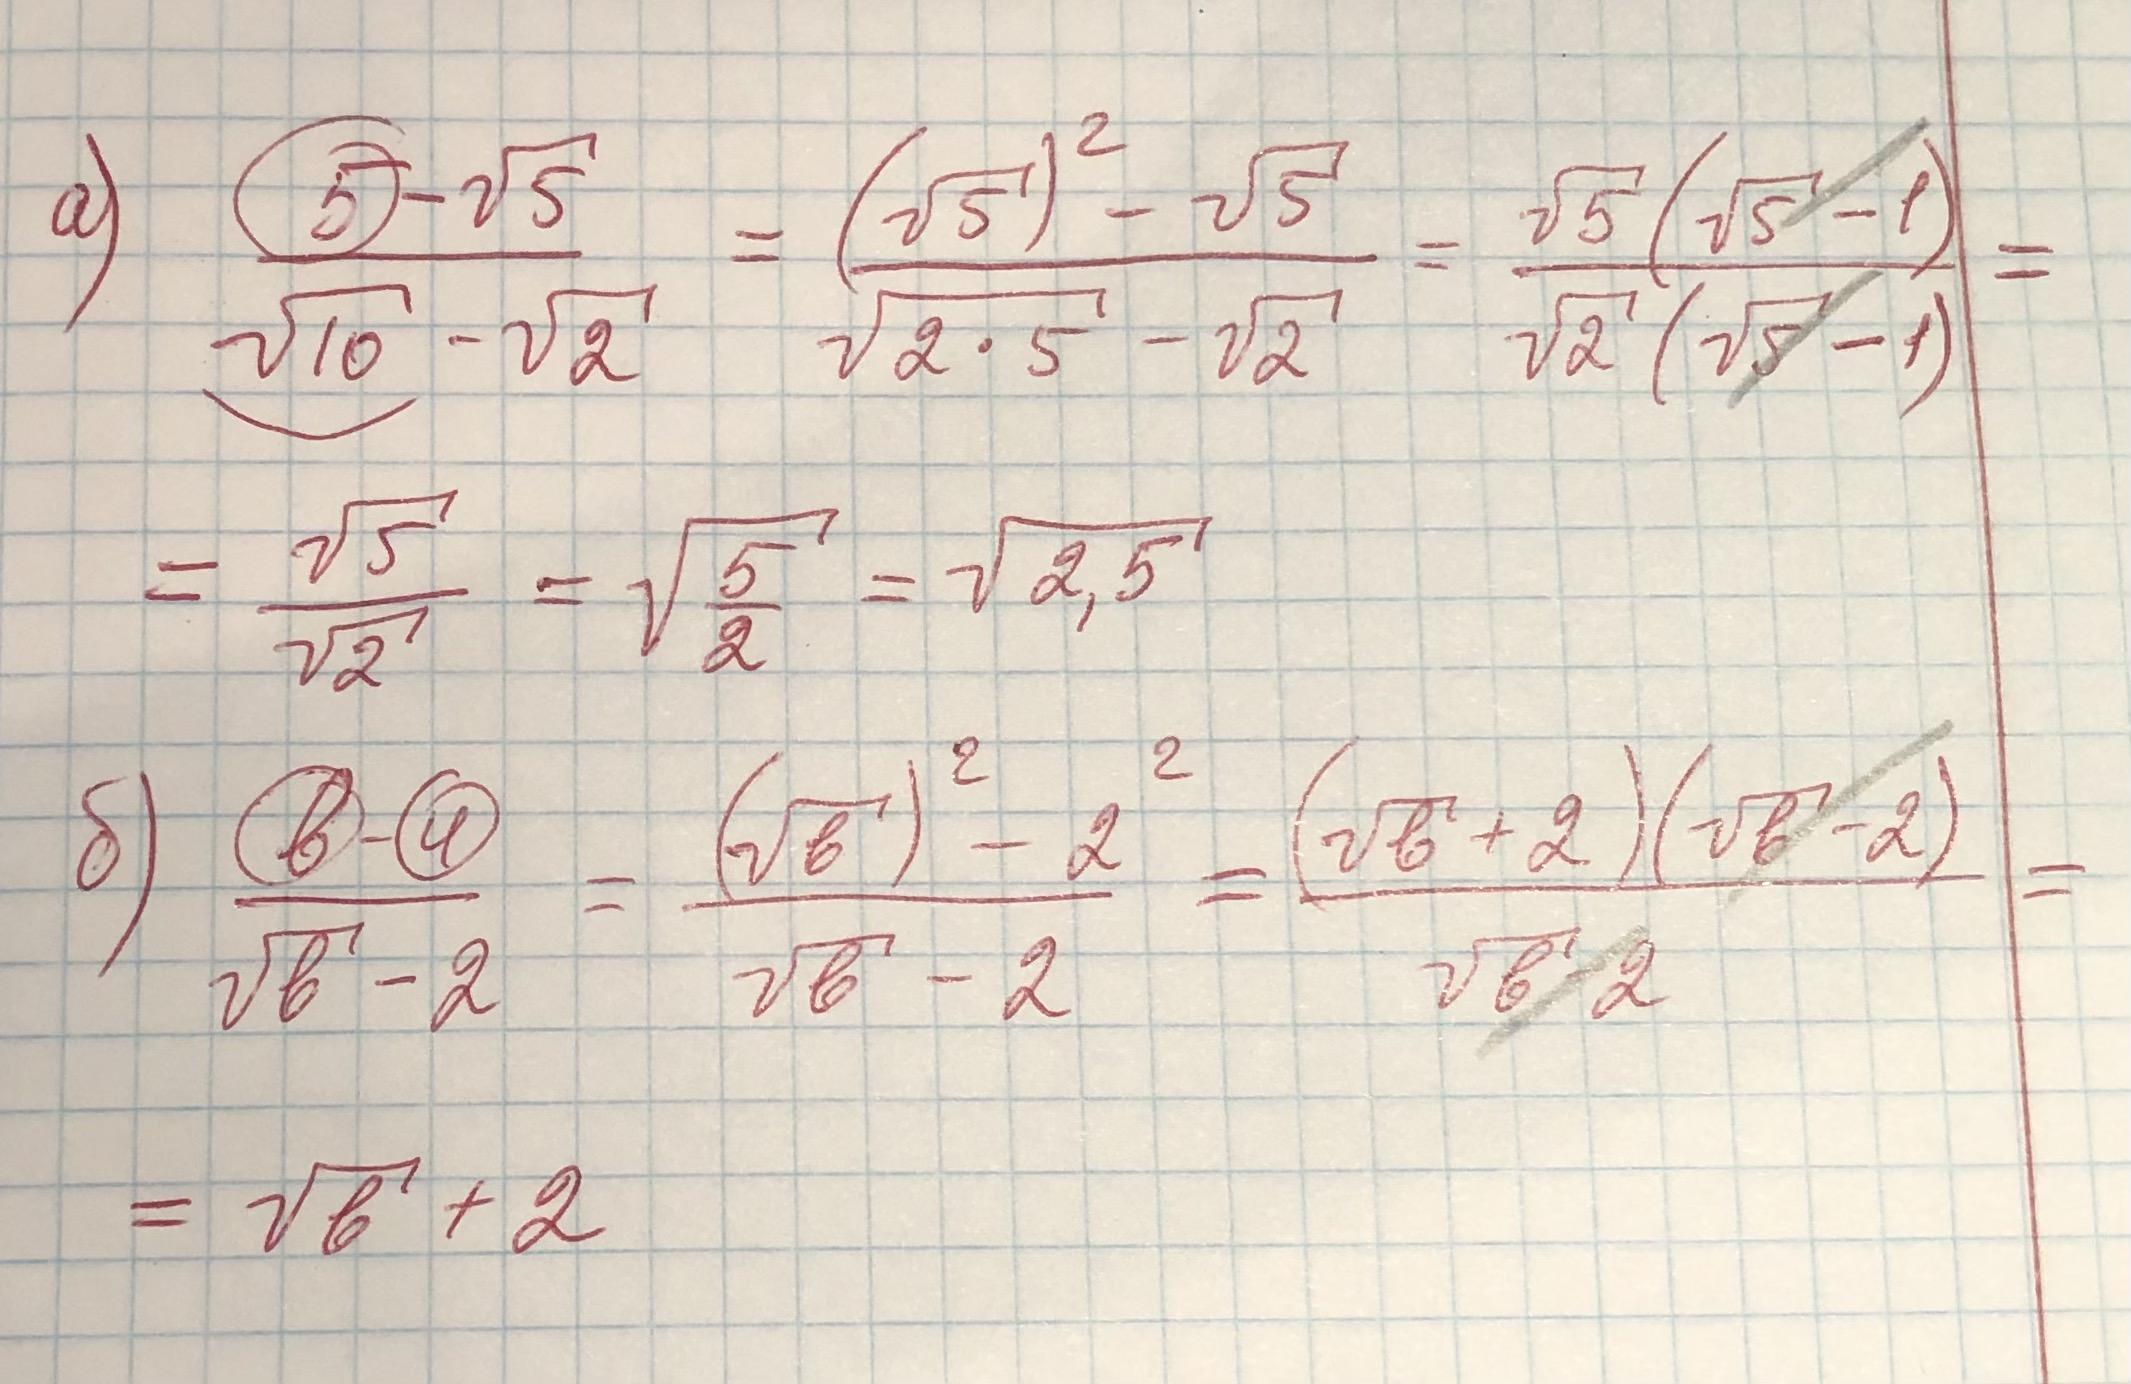 а) (5 - √5)/(√10 - √2) = ((√5)² - √5)/(√(2·5) - √2) = (√5(√5 - 1))/(√2(√5 - 1)) =
= √5/√2 = √(5/2) = √2,5
б) (в - 4)/(√в - 2) = ((√в)² - 2²)/(√в - 2) = ((√в + 2)(√в - 2))/(√в - 2) =
= √в + 2